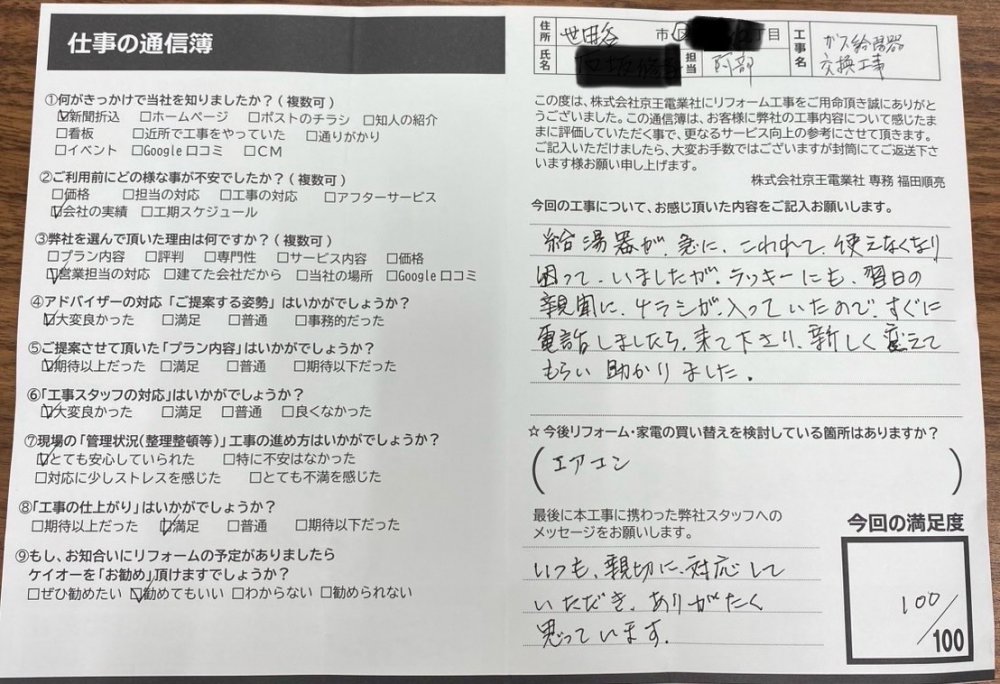 仕事の通信簿
①何がきっかけで当社を知りましたか?(複数可)
☑新聞折込 □ホームページ □ポストのチラシ □知人の紹介
□看板 □近所で工事をやっていた □通りがかり
□イベント □Google口コミ □CM
②ご利用前にどの様な事が不安でしたか?(複数可)
□価格 □担当の対応 □工事の対応 □アフターサービス
☑会社の実績 □工期スケジュール
③弊社を選んで頂いた理由は何ですか?(複数可)
□プラン内容 □評判 □専門性 □サービス内容 □価格
☑営業担当の対応 □建てた会社だから □当社の場所 □Google口コミ
④アドバイザーの対応「ご提案する姿勢」はいかがでしょうか?
☑大変良かった □満足 □普通 □事務的だった
⑤ご提案させて頂いた「プラン内容」はいかがでしょうか?
☑期待以上だった □満足 □普通 □期待以下だった
⑥「工事スタッフの対応」はいかがでしょうか?
☑大変良かった □満足 □普通 □良くなかった
⑦現場の「管理状況(整理整頓等)」工事の進め方はいかがでしょうか?
☑とても安心していられた □特に不安はなかった
□対応に少しストレスを感じた □とても不満を感じた
⑧「工事の仕上がり」はいかがでしょうか?
□期待以上だった ☑満足 □普通 □期待以下だった
⑨もし、お知合いにリフォームの予定がありましたら
ケイオーを「お勧め」頂けますでしょうか?
□ぜひ勧めたい ☑勧めてもいい □わからない □勧められない
住所 世田谷 市区 丁目
氏名 担当 阿部
工事名 ガス給湯器
交換工事
この度は、株式会社京王電業社にリフォーム工事をご用命頂き誠にありがと
うございました。この通信簿は、お客様に弊社の工事内容について感じたま
まに評価していただく事で、更なるサービス向上の参考にさせて頂きます。
ご記入いただけましたら、大変お手数ではございますが封筒にてご返送下さ
います様お願い申し上げます。
株式会社京王電業社 専務 福田順亮
今回の工事について、お感じ頂いた内容をご記入お願いします。
給湯器が、急に、こわれて、使えなくなり
困って、いましたが、ラッキーにも、翌日の
新聞に、チラシが、入っていたので、すぐに
電話しましたら、来て下さり、新しく変えて
もらい助かりました。
☆今後リフォーム・家電の買い替えを検討している箇所はありますか?
(エアコン)
最後に本工事に携わった弊社スタッフへの
メッセージをお願いします。
いつも、親切に、対応して
いただき、ありがたく
思っています。
今回の満足度
100/100